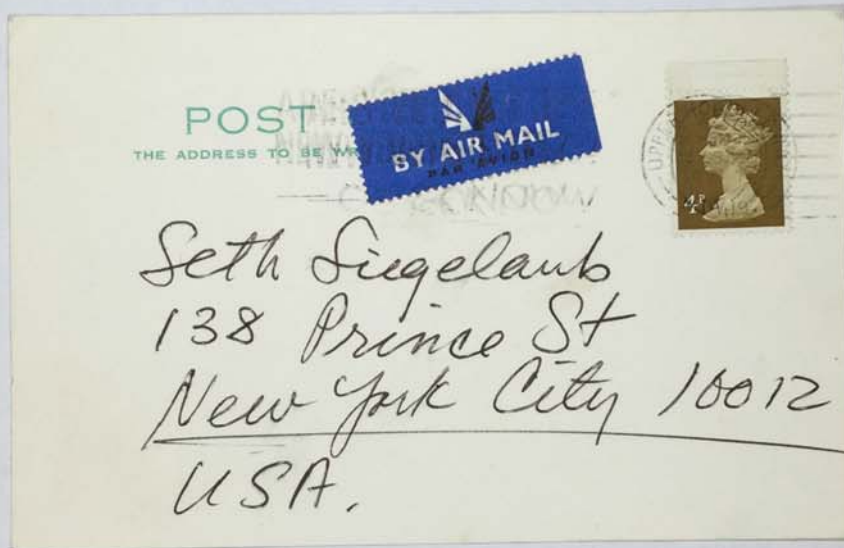 POST
THE ADDRESS TO BE WR
BY AIR MAIL
PAR AVION
4P
Seth Siegelaub
138 Prince St
New York City 10012
USA.